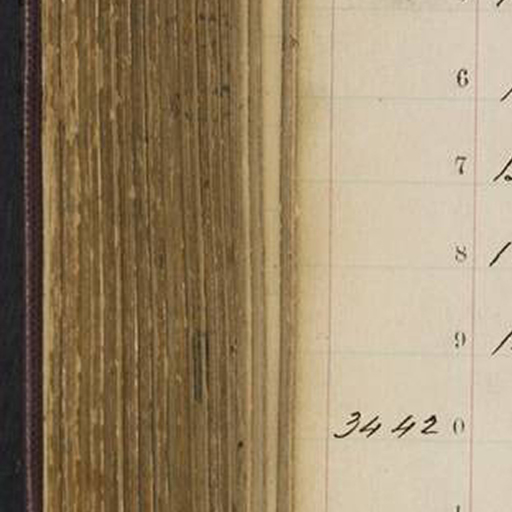 6
7
8
9
3442 0